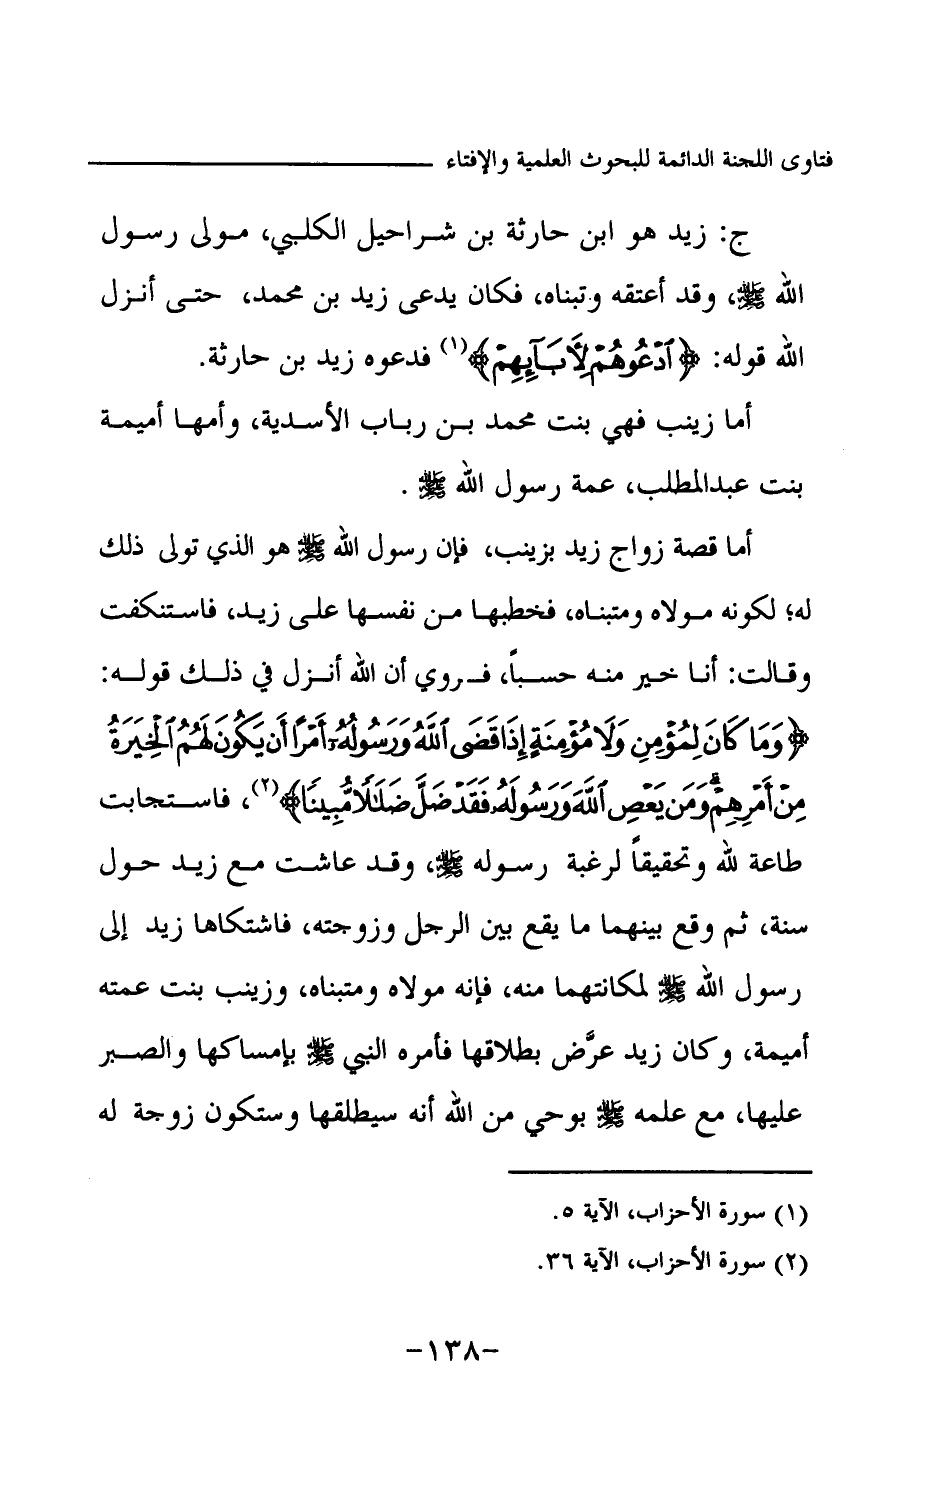 فتاوى اللجنة الدائمة للبحوث العلمية والإفتاء
ج: زيد هو ابن حارثة بن شراحيل الكلبي، مولى رسول
الله ﷺ، وقد أعتقه وتبناه، فكان يدعى زيد بن محمد، حتى أنزل
الله قوله: ﴿ٱدۡعُوهُمۡ لِأٓبَآئِهِمۡ﴾(١) فدعوه زيد بن حارثة.
أما زينب فهي بنت محمد بن رباب الأسدية، وأمها أميمة
بنت عبدالمطلب، عمة رسول الله ﷺ .
أما قصة زواج زيد بزينب، فإن رسول الله ﷺ هو الذي تولى ذلك
له؛ لكونه مولاه ومتبناه، فخطبها من نفسها على زيد، فاستنكفت
وقالت: أنا خير منه حسباً، فروي أن الله أنزل في ذلك قوله:
﴿وَمَا كَانَ لِمُؤۡمِنٖ وَلَا مُؤۡمِنَةٍ إِذَا قَضَى ٱللَّهُ وَرَسُولُهُۥٓ أَمۡرًا أَن يَكُونَ لَهُمُ ٱلۡخِيَرَةُ
مِنۡ أَمۡرِهِمۡۗ وَمَن يَعۡصِ ٱللَّهَ وَرَسُولَهُۥ فَقَدۡ ضَلَّ ضَلَٰلٗا مُّبِينٗا﴾(٢)، فاستجابت
طاعة لله وتحقيقاً لرغبة رسوله ﷺ، وقد عاشت مع زيد حول
سنة، ثم وقع بينهما ما يقع بين الرجل وزوجته، فاشتكاها زيد إلى
رسول الله ﷺ لمكانتهما منه، فإنه مولاه ومتبناه، وزينب بنت عمته
أميمة، وكان زيد عرَّض بطلاقها فأمره النبي ﷺ بإمساكها والصبر
عليها، مع علمه ﷺ بوحي من الله أنه سيطلقها وستكون زوجة له
(١) سورة الأحزاب، الآية ٥.
(٢) سورة الأحزاب، الآية ٣٦.
-١٣٨-